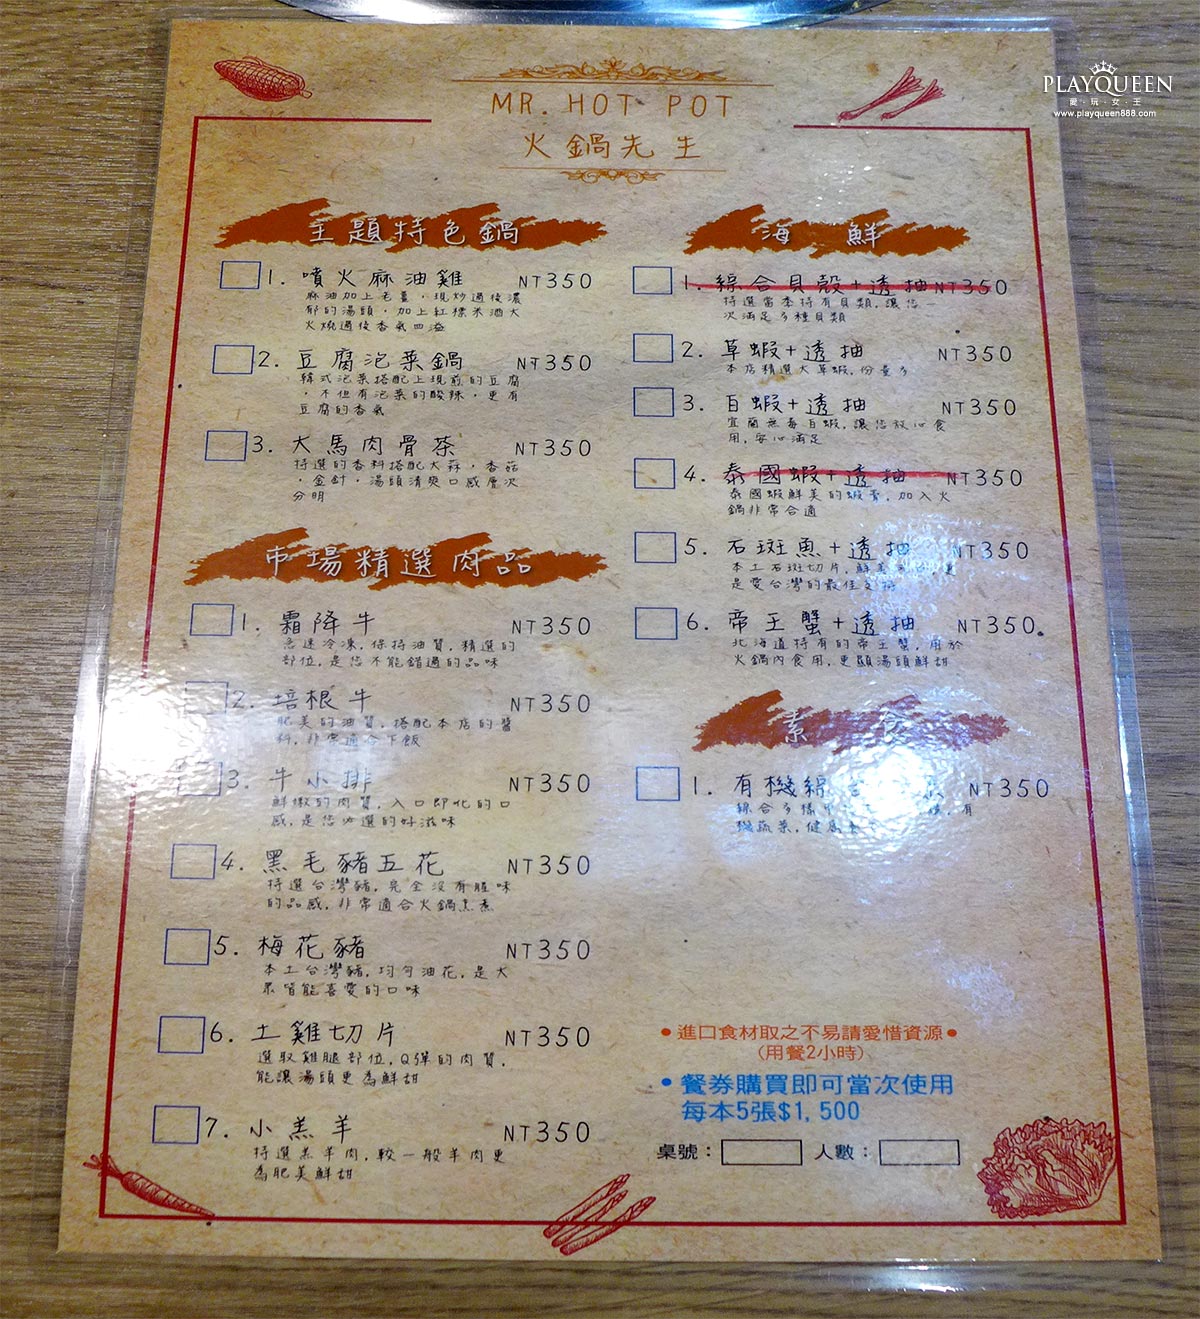 PLAYQUEEN
愛·玩·女·王
www.playqueen888.com
MR. HOT POT
火鍋先生
主題特色鍋
1. 噴火麻油雞 NT350
麻油加上老薑，現炒過後濃
郁的湯頭，加上紅標米酒大
火燒過後香氣四溢
2. 豆腐泡菜鍋 NT350
韓式泡菜搭配上現煎的豆腐
，不但有泡菜的酸辣，更有
豆腐的香氣
3. 大馬肉骨茶 NT350
特選的香料搭配大蒜，香菇
，金針，湯頭清爽口感層次
分明
市場精選肉品
1. 霜降牛 NT350
急速冷凍，保持油質，精選的
部位，是您不能錯過的品味
2. 培根牛 NT350
肥美的油質，搭配本店的醬
料，非常適合下飯
3. 牛小排 NT350
鮮嫩的肉質，入口即化的口
感，是您必選的好滋味
4. 黑毛豬五花 NT350
特選台灣豬，完全沒有腥味
的品感，非常適合火鍋烹煮
5. 梅花豬 NT350
本土台灣豬，均勻油花，是大
眾皆能喜愛的口味
6. 土雞切片 NT350
選取雞腿部位，Q彈的肉質，
能讓湯頭更為鮮甜
7. 小羔羊 NT350
特選羔羊肉，較一般羊肉更
為肥美鮮甜
海鮮
1. 綜合貝殼+透抽 NT350
特選當季特有貝類，讓您一
次滿足多種貝類
2. 草蝦+透抽 NT350
本店精選大草蝦，份量多
3. 白蝦+透抽 NT350
宜蘭無毒白蝦，讓您放心食
用，安心滿足
4. 泰國蝦+透抽 NT350
泰國蝦鮮美的蝦膏，加入火
鍋非常合適
5. 石斑魚+透抽 NT350
本土石斑切片，鮮美 更
是愛台灣的最佳支持
6. 帝王蟹+透抽 NT350
北海道特有的帝王蟹，用於
火鍋內食用，更顯湯頭鮮甜
素食
1. 有機綜 NT350
綜合多樣 有
機蔬菜，健康
●進口食材取之不易請愛惜資源●
(用餐2小時)
●餐券購買即可當次使用
每本5張$1,500
桌號： 人數：